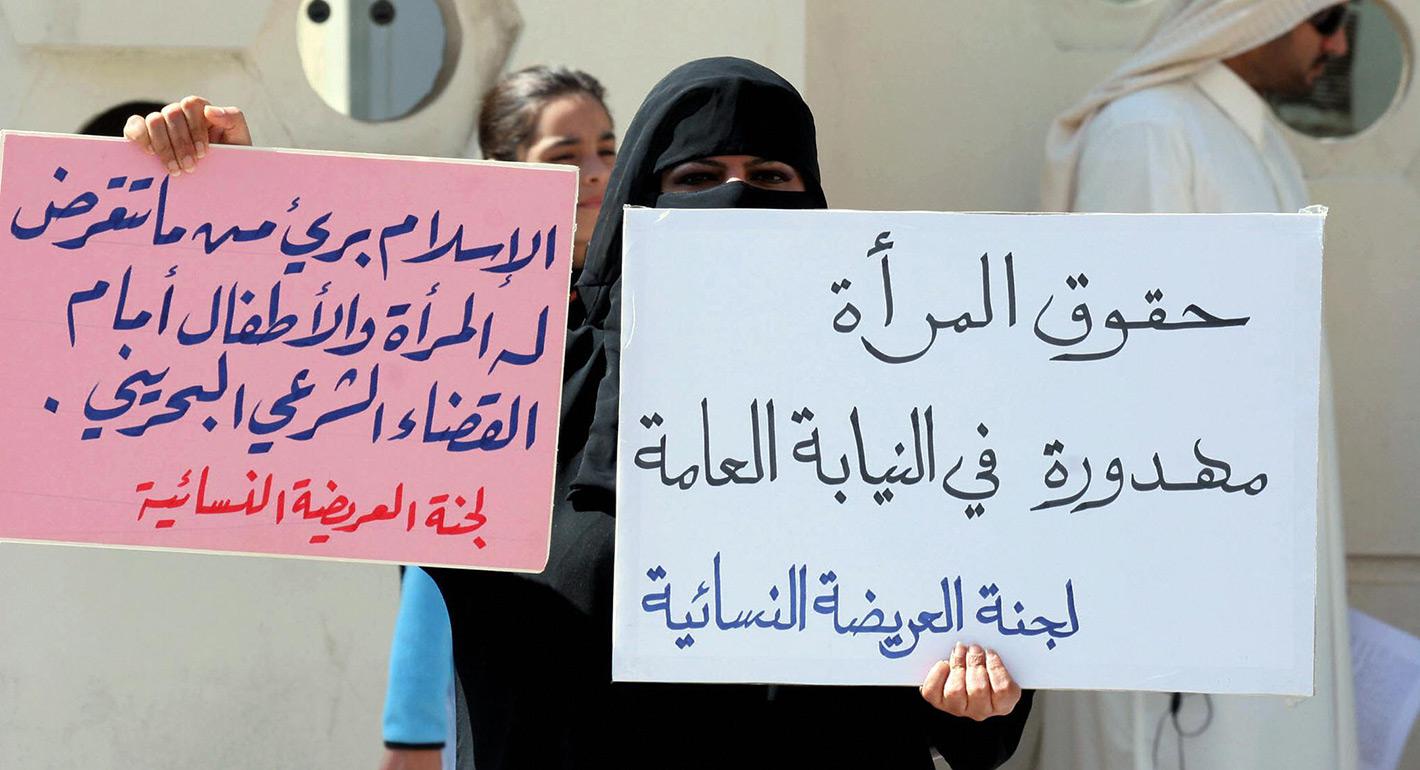 الإسلام بريءٌ من ما تتعرض
له المرأة والأطفال أمام
القضاء الشرعي البحريني .
لجنة العريضة النسائية
حقوق المرأة
مهدورة في النيابة العامة
لجنة العريضة النسائية